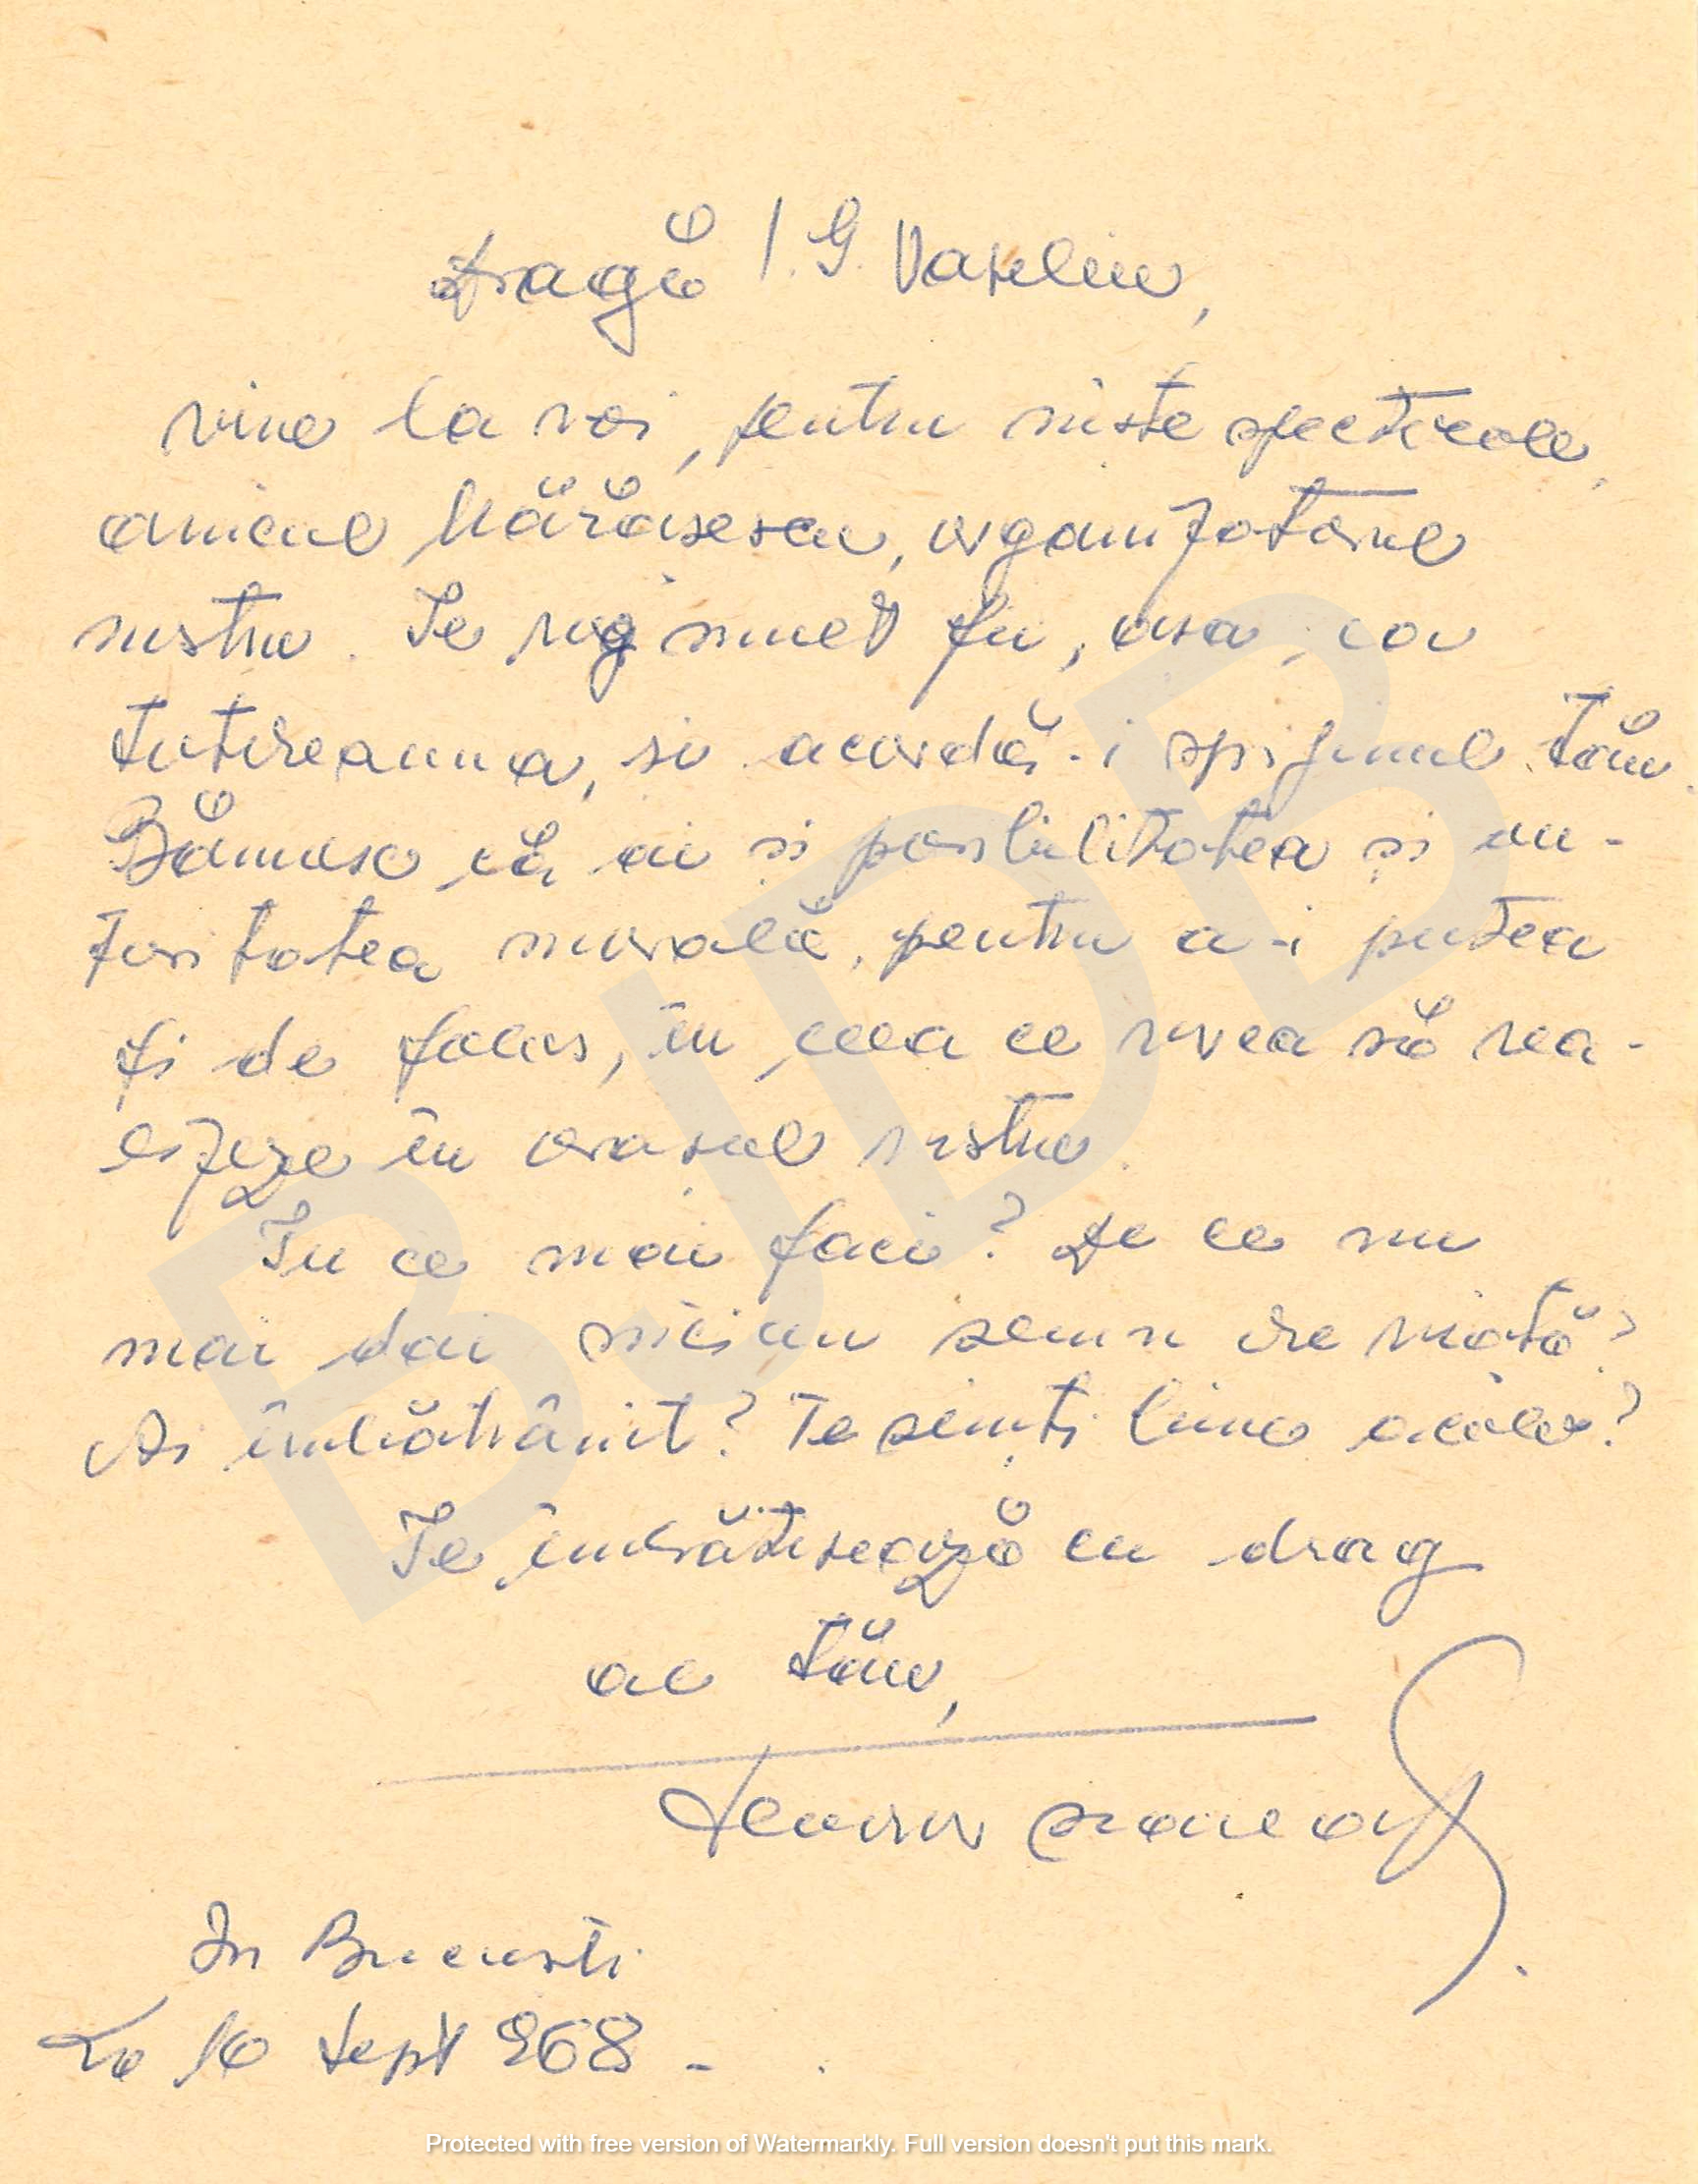 Dragă I. G. Vasiliu,
vine la voi, pentru niște spectacole,
amicul Hărăsescu, organizatorul
nostru. Te rog mult fii, așa, ca
totdeauna, și acordă-i sprijinul tău.
Bănuesc că ai și posibilitatea și au-
toritatea morală, pentru a-i putea
fi de folos, în ceea ce vrea să rea-
lizeze în orașul vostru.
Tu ce mai faci? De ce nu
mai dai niciun semn de viață?
Ai îmbătrânit? Te simți bine acolo?
Te îmbrățișează cu drag
al tău,
In București
La 10 sept 968 -
BJDB
Protected with free version of Watermarkly. Full version doesn't put this mark.